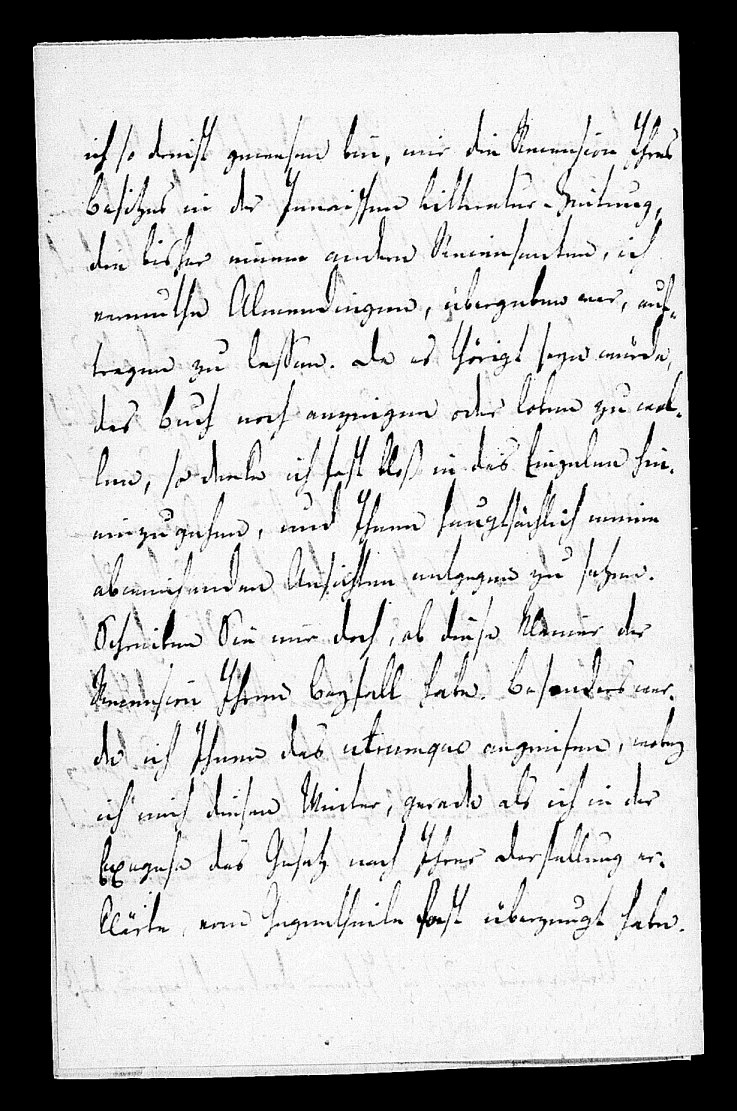 ich so dreist gewesen bin, mir die Recension Ihres
Besitzes in der Jenaischen Litteratur-Zeitung,
die bisher einem andern Recensenten, ich
vermuthe Almendingen, übergeben war, auf-
tragen zu lassen. Da es thörigt seyn würde,
das Buch noch anzeigen oder loben zu wol-
len, so denke ich fast bloß in das Einzelne hin-
einzugehen, und Ihnen hauptsächlich meine
abweichenden Ansichten entgegen zu setzen.
Schreiben Sie mir doch, ob diese Manier der
Recension Ihren Beyfall habe. Besonders wer-
de ich Ihnen das utrumque angreifen, wobey
ich mich diesen Winter, gerade als ich in der
Exegese das Gesetz nach Ihrer Darstellung er-
klärte, vom Gegentheile fast überzeugt habe.